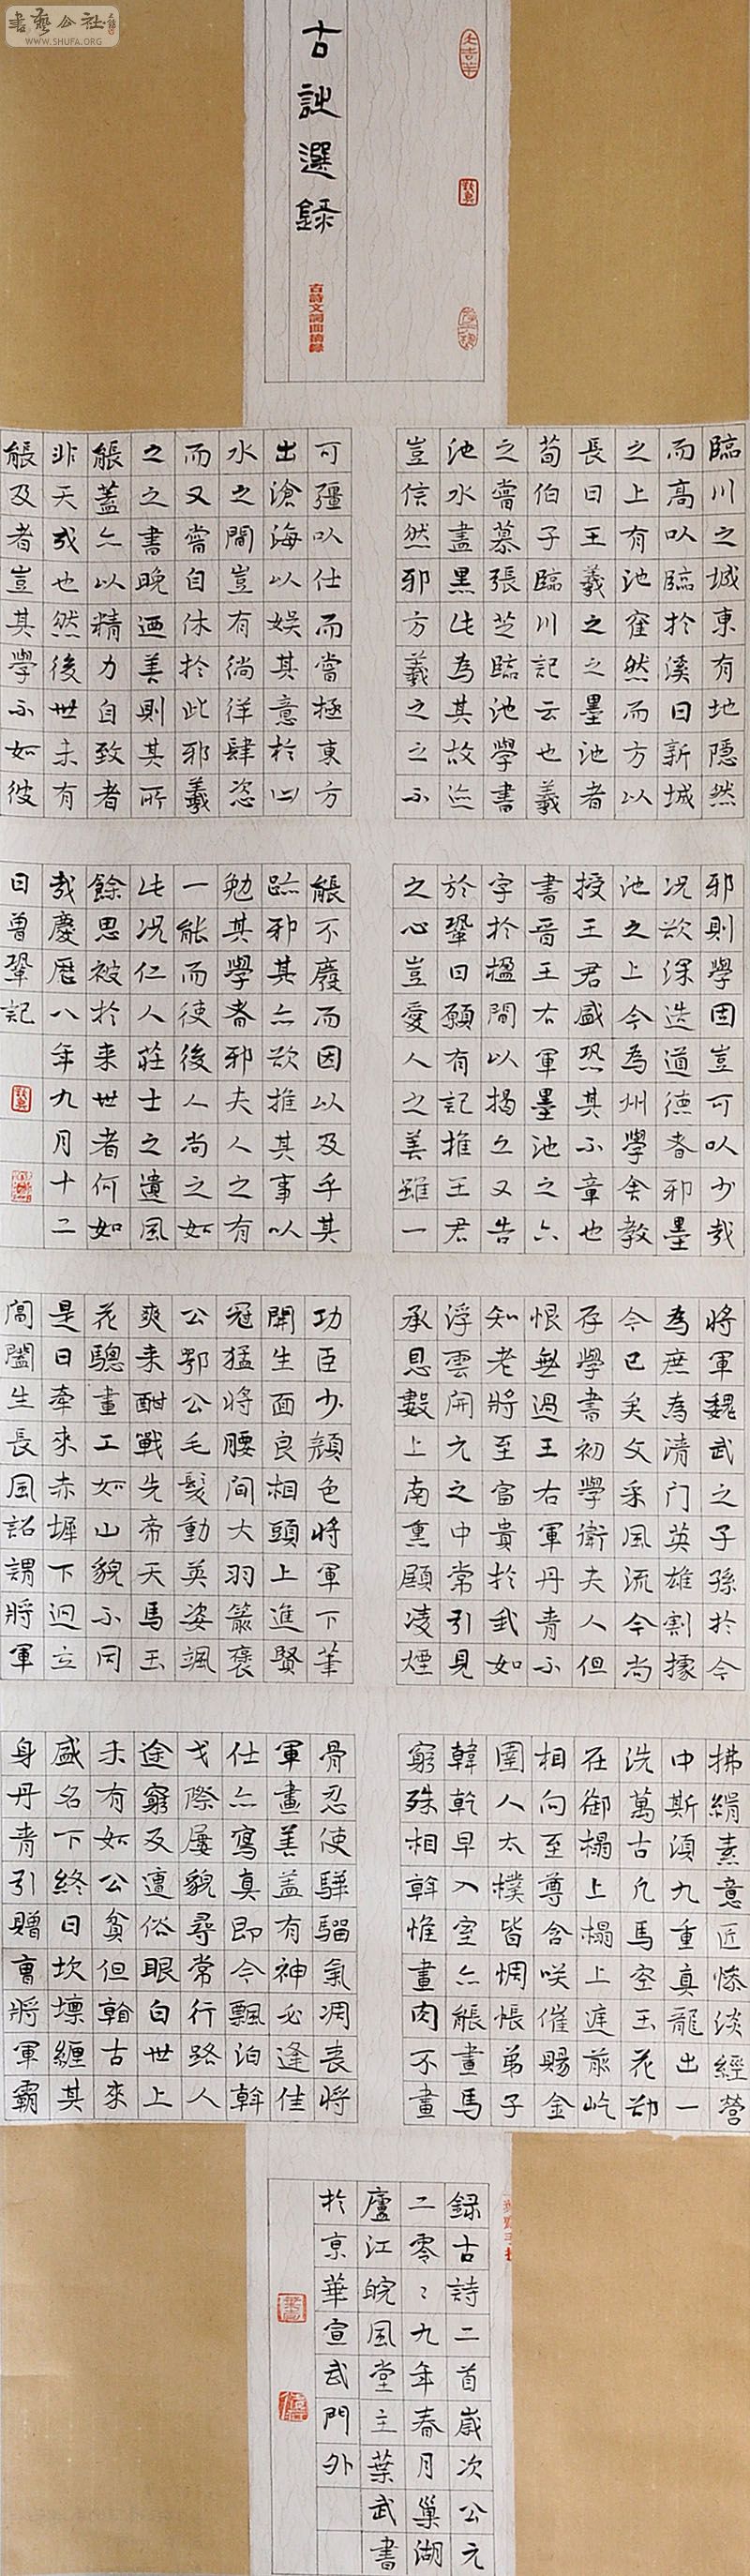 書藝公社
WWW.SHUFA.ORG
古詩選錄
古詩文詞曲摘錄
臨川之城東有地隱然
而高以臨於溪曰新城
之上有池窪然而方以
長曰王羲之之墨池者
荀伯子臨川記云也羲
之嘗慕張芝臨池學書
池水盡黑此為其故迹
豈信然邪方羲之之不
可彊以仕而嘗極東方
出滄海以娛其意於山
水之間豈有徜徉肆恣
而又嘗自休於此邪羲
之之書晚迺美則其所
能蓋亦以精力自致者
非天成也然後世未有
能及者豈其學不如彼
邪則學固豈可以少哉
况欲深造道德者邪墨
池之上今為州學舍教
授王君盛恐其不章也
書晉王右軍墨池之六
字於楹間以揭之又告
於鞏曰願有記推王君
之心豈愛人之善雖一
能不廢而因以及乎其
跡邪其亦欲推其事以
勉其學者邪夫人之有
一能而使後人尚之如
此况仁人莊士之遺風
餘思被於来世者何如
哉慶曆八年九月十二
日曾鞏記
將軍魏武之子孫於今
為庶為清门英雄割據
今已矣文采風流今尚
存學書初學衛夫人但
恨無過王右軍丹青不
知老將至富貴於我如
浮雲開元之中常引見
承恩數上南熏殿凌煙
功臣少顏色將軍下筆
開生面良相頭上進賢
冠猛將腰间大羽箭褒
公鄂公毛髮動英姿颯
爽来酣戰先帝天馬玉
花驄畫工如山貌不同
是日牽來赤墀下迥立
閶闔生長風詔謂將軍
拂絹素意匠慘淡經營
中斯湏九重真龍出一
洗萬古凡馬空玉花却
在御榻上榻上庭前屹
相向至尊含咲催賜金
圉人太樸皆惆悵弟子
韓乾早入室亦能畫馬
窮殊相幹惟畫肉不畫
骨忍使驊騮氣凋喪將
軍畫善盖有神必逢佳
仕亦寫真即今飄泊幹
戈際屢貌尋常行路人
途窮反遭俗眼白世上
未有如公貧但翰古來
盛名下終日坎壈纏其
身丹青引贈曹將軍霸
録古詩二首歲次公元
二零〻九年春月巢湖
廬江皖風堂主葉武書
於京華宣武門外